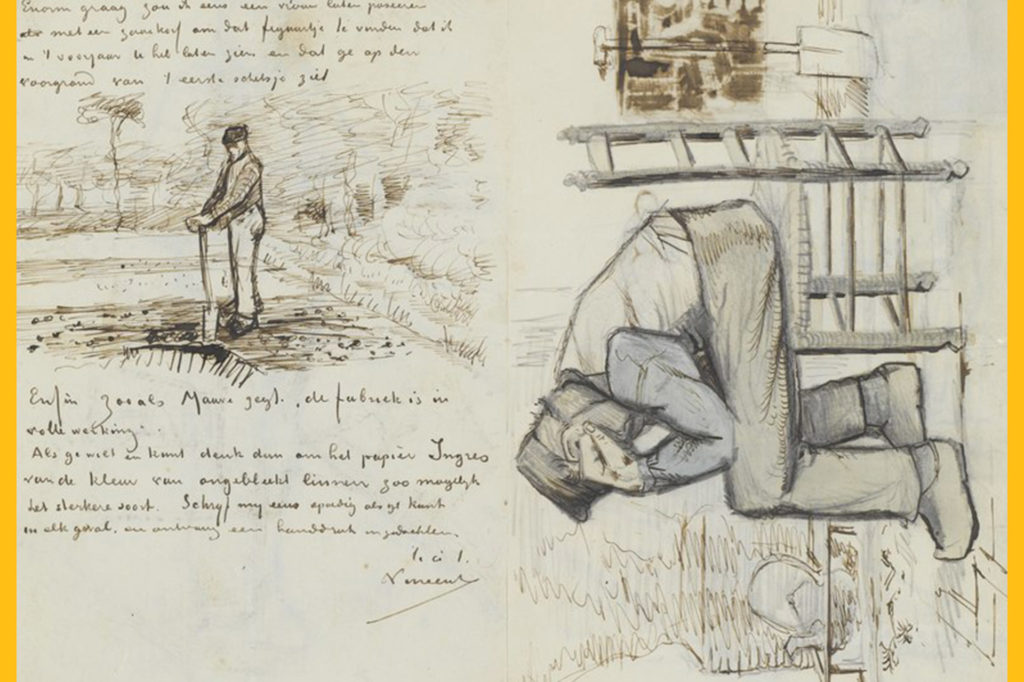 Enorm graag zou ik eens een vrouw laten poseeren
met een zaaikorf om dat figuurtje te vinden dat ik
in 't voorjaar U heb laten zien en dat ge op den
voorgrond van 't eerste schetsje ziet
Enfin zooals Mauve zegt, de fabriek is in
volle werking.
Als ge wilt en kunt denk dan om het papier Ingres
van de kleur van ongebleekt linnen zoo mogelijk
het sterkere soort. Schryf my eens spoedig als ge kunt
in elk geval, en ontvang een handdruk in gedachten.
t. à t.
Vincent